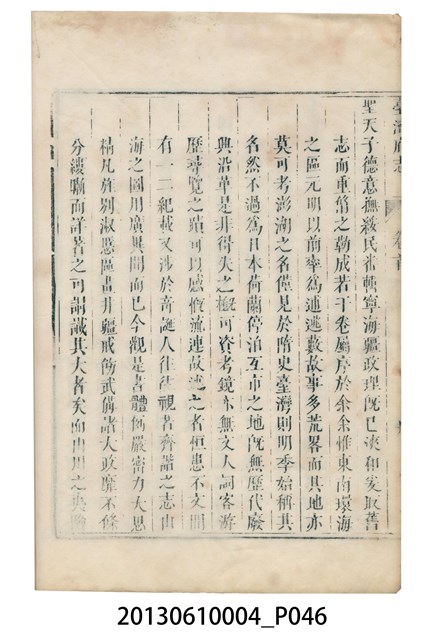 臺灣府志
卷首
聖天子德意撫綏民番輯寧海疆政理既已浹和爰取舊
志而重脩之勒成若干卷屬序於余余惟東南環海
之區元明以前率為逋逃藪故事多荒畧而其地亦
莫可考澎湖之名僅見於隋史臺灣則明季始稱其
名然不過為日本荷蘭停泊互市之地既無歷代廢
興沿革是非得失之概可資考鏡亦無文人詞客游
歷尋覽之蹟可以感慨流連故述之者恒患不文間
有一二紀載又涉於奇誕人往往視若齊諧之志山
海之圖用廣異聞而已今觀是書體例嚴密力大思
精凡旌別淑慝區畫井疆戒飭武備諸大政靡不條
分縷晰而詳著之可謂識其大者矣而山川之夷險
20130610004_P046